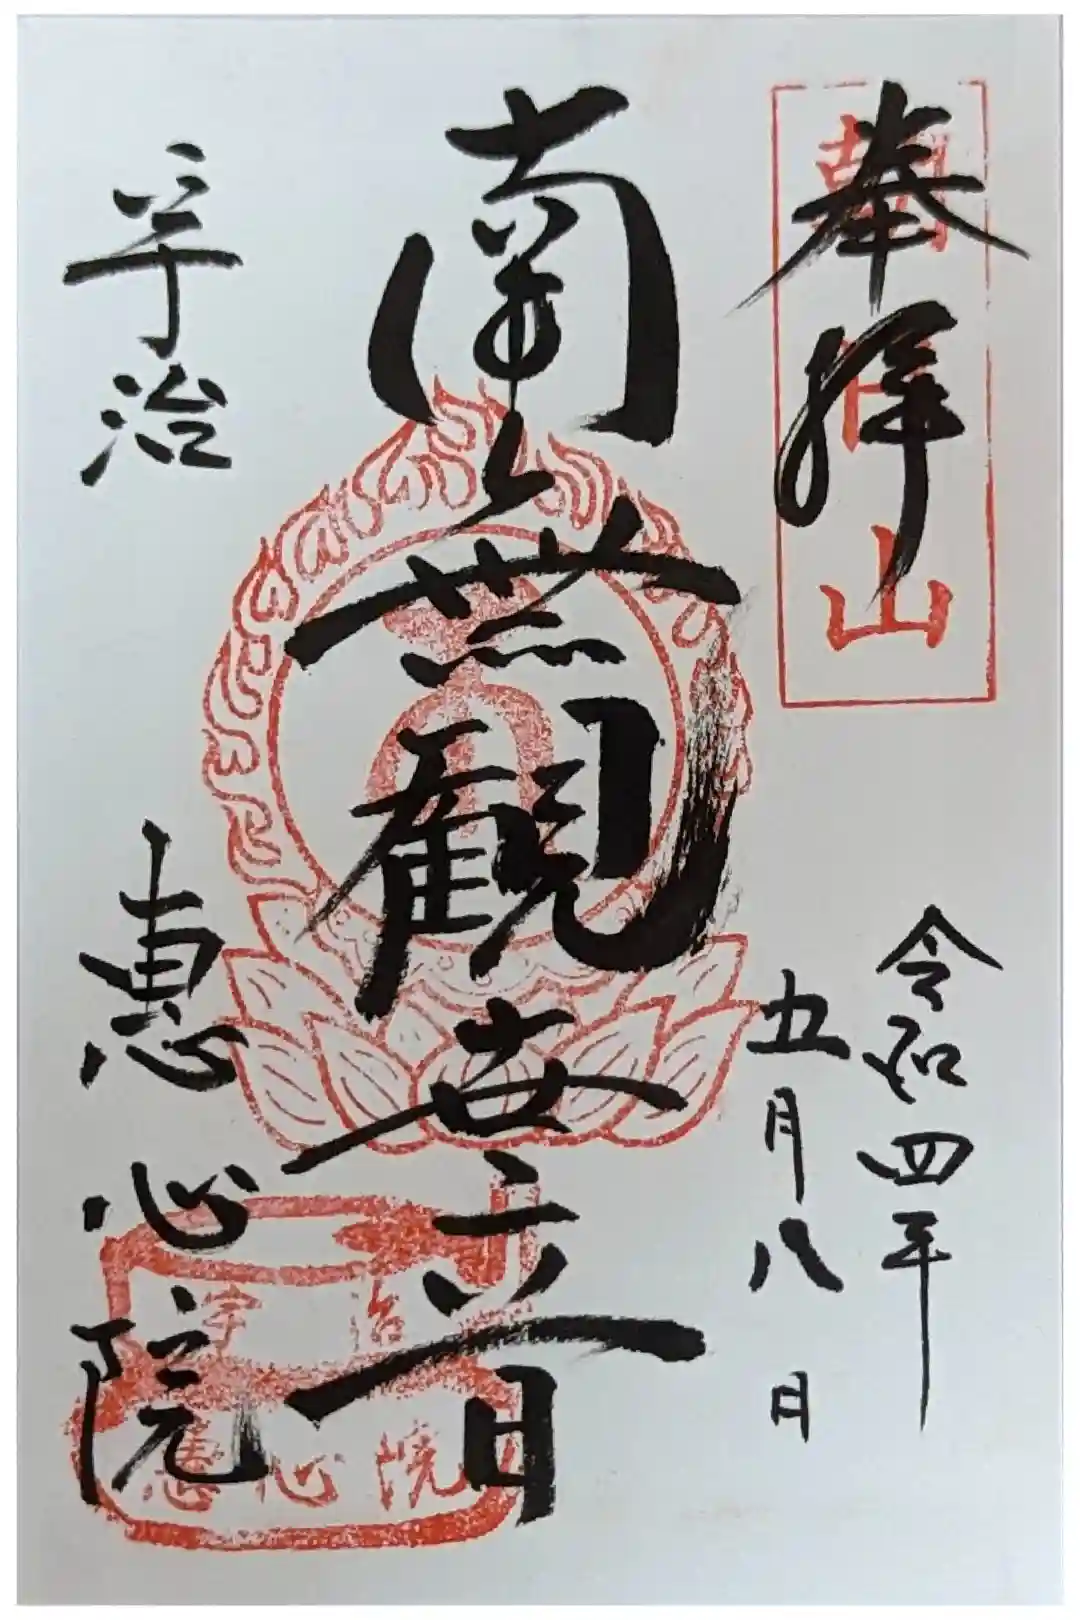 奉拝
朝日山
令和四年
五月八日
南無観世音
宇治
恵心院
宇治
恵心院